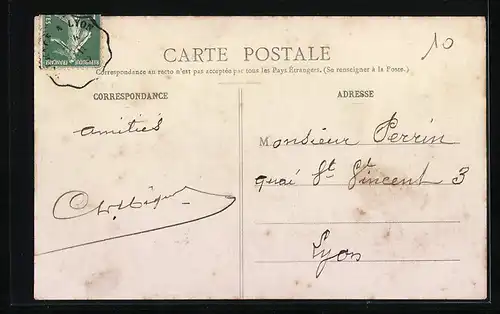 LYON
RÉPUBLIQUE FRANÇAISE
10
CARTE POSTALE
Correspondance au recto n'est pas acceptée par tous les Pays Étrangers. (Se renseigner à la Poste.)
CORRESPONDANCE
ADRESSE
amitiés
Monsieur Perrin
quai St Vincent 3
Lyon